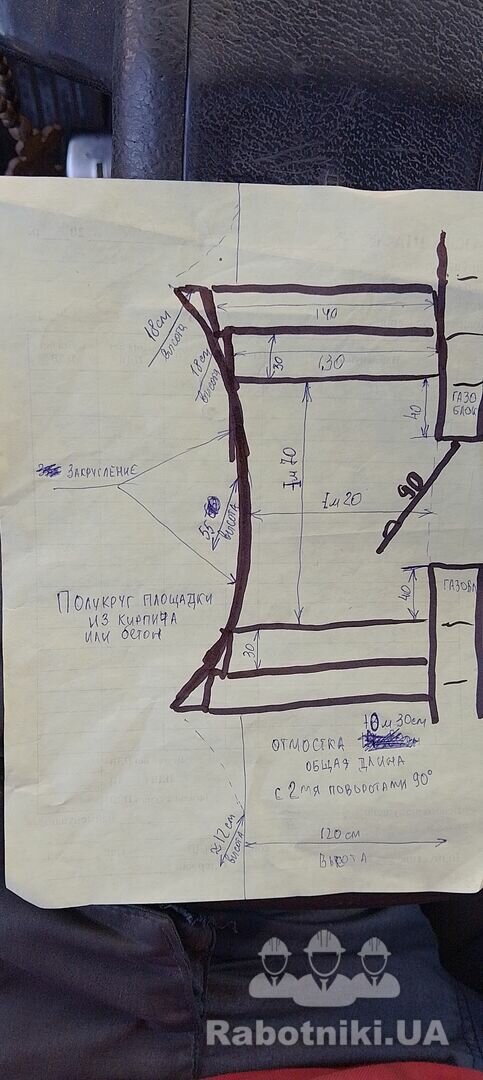 140
18см
высота
30
130
18см
высота
40
ГАЗО
БЛОК
ЗАКРУГЛЕНИЕ
1м70
90
55
высота
1м20
ПОЛУКРУГ ПЛОЩАДКИ
ИЗ КИРПИЧА
ИЛИ БЕТОН
40
ГАЗОБЛ
30
10м 30см
ОТМОСТКА
ОБЩАЯ ДЛИНА
С 2МЯ ПОВОРОТАМИ 90°
≈12см
высота
120см
ВЫСОТА
Rabotniki.UA